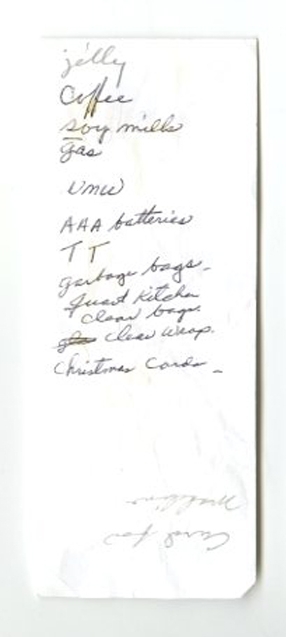 jelly
Coffee
soy milk
gas
AAA batteries
T T
garbage bags
Quart Kitchen
clear bags.
clear wrap.
Christmas Cards
Card for